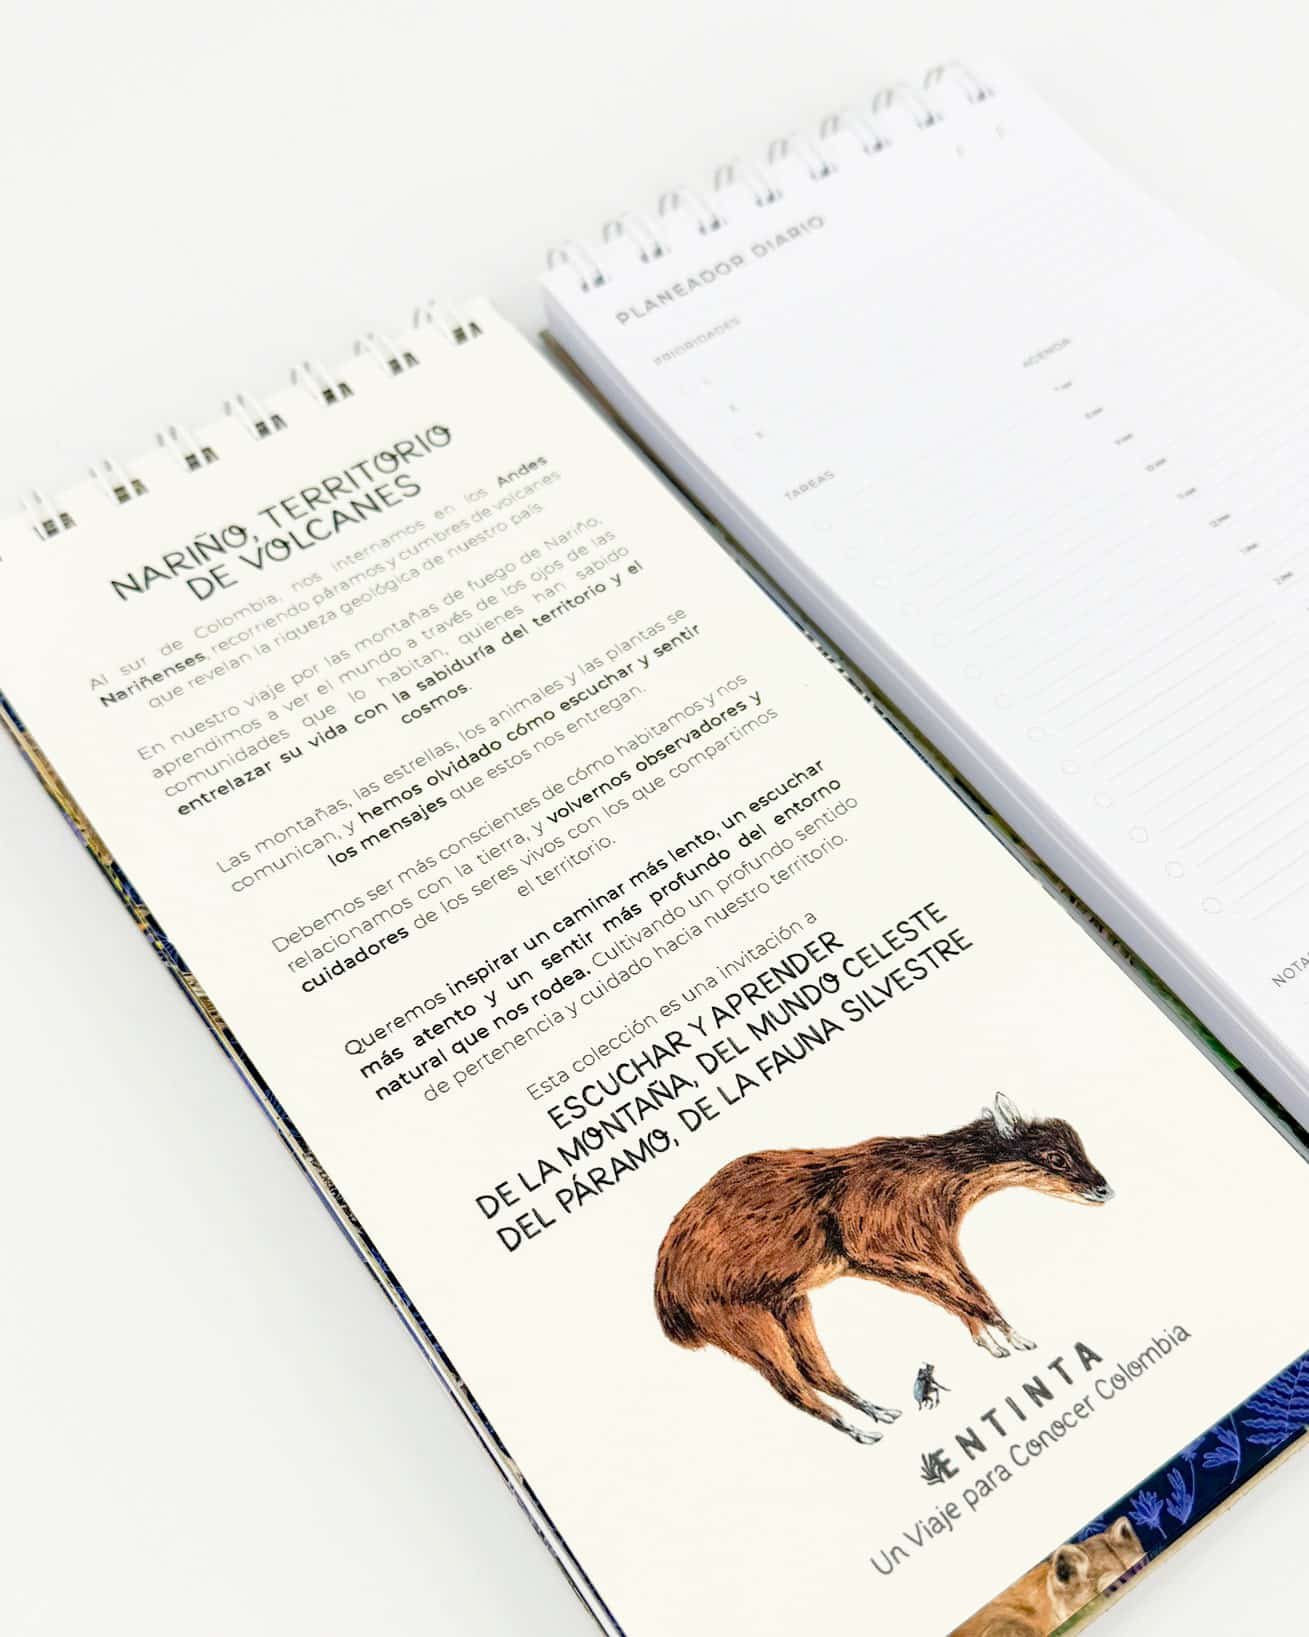 NARIÑO, TERRITORIO
DE VOLCANES
Al sur de Colombia, nos internamos en los Andes
Nariñenses, recorriendo páramos y cumbres de volcanes
que revelan la riqueza geológica de nuestro país.
En nuestro viaje por las montañas de fuego de Nariño,
aprendimos a ver el mundo a través de los ojos de las
comunidades que lo habitan, quienes han sabido
entrelazar su vida con la sabiduría del territorio y el
cosmos.
Las montañas, las estrellas, los animales y las plantas se
comunican, y hemos olvidado cómo escuchar y sentir
los mensajes que estos nos entregan.
Debemos ser más conscientes de cómo habitamos y nos
relacionamos con la tierra, y volvernos observadores y
cuidadores de los seres vivos con los que compartimos
el territorio.
Queremos inspirar un caminar más lento, un escuchar
más atento y un sentir más profundo del entorno
natural que nos rodea. Cultivando un profundo sentido
de pertenencia y cuidado hacia nuestro territorio.
Esta colección es una invitación a
ESCUCHAR Y APRENDER
DE LA MONTAÑA, DEL MUNDO CELESTE
DEL PÁRAMO, DE LA FAUNA SILVESTRE
ENTINTA
Un Viaje para Conocer Colombia
PLANEADOR DIARIO
PRIORIDADES
AGENDA
TAREAS